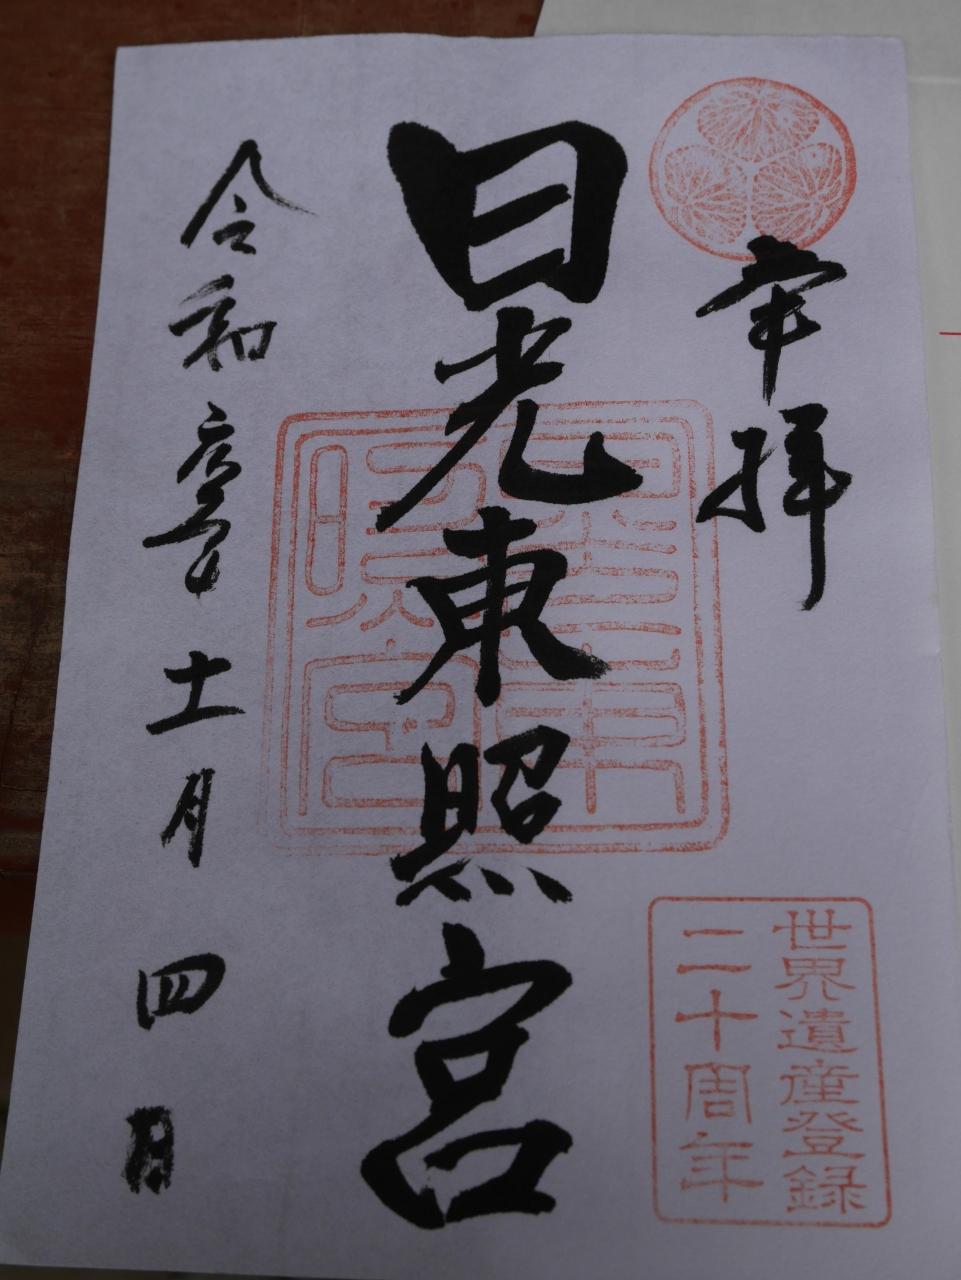 奉拝
日光東照宮
令和元年十一月四日
世界遺産登録
二十周年